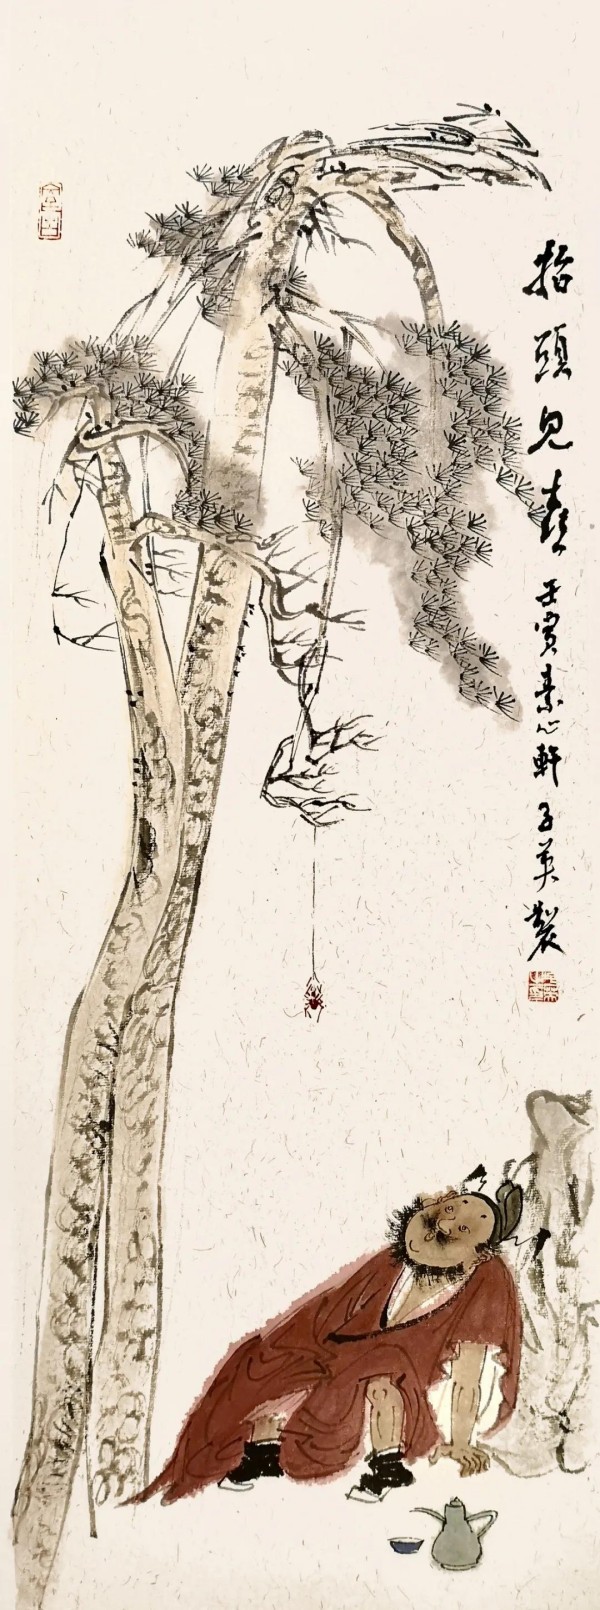 抬頭見喜 壬寅素心軒子英製